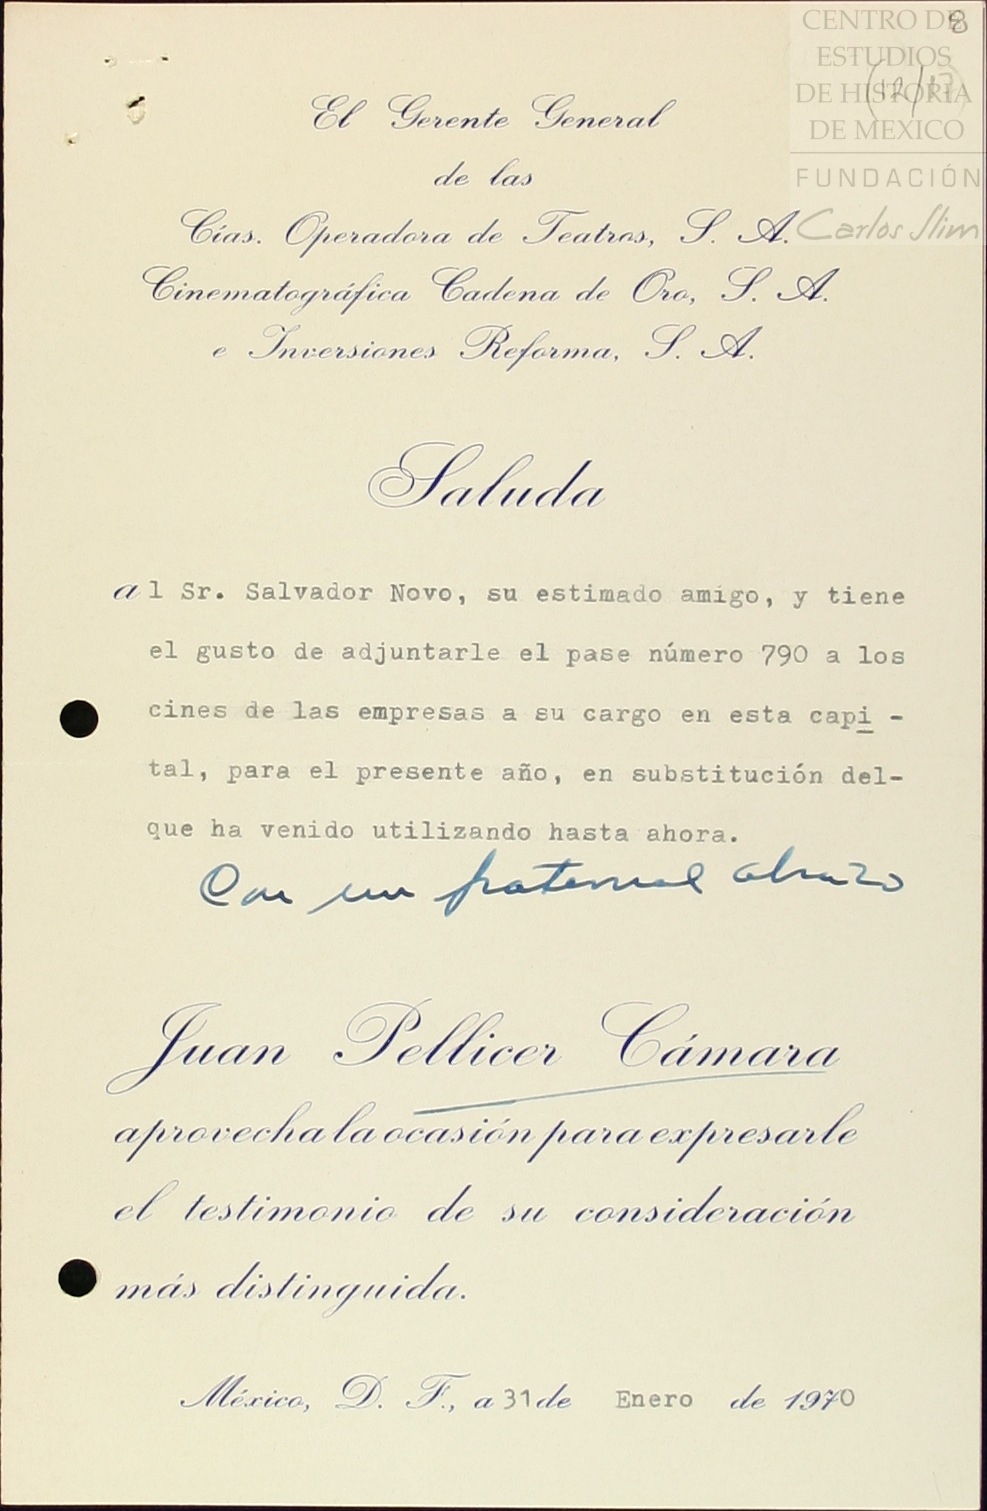 8
CENTRO DE
ESTUDIOS
DE HISTORIA
DE MEXICO
FUNDACIÓN
Carlos Slim
(12/17)
El Gerente General
de las
Cías. Operadora de Teatros, S. A.
Cinematográfica Cadena de Oro, S. A.
e Inversiones Reforma, S. A.
Saluda
al Sr. Salvador Novo, su estimado amigo, y tiene
el gusto de adjuntarle el pase número 790 a los
cines de las empresas a su cargo en esta capi -
tal, para el presente año, en substitución del-
que ha venido utilizando hasta ahora.
Con un fraternal abrazo
Juan Pellicer Cámara
aprovecha la ocasión para expresarle
el testimonio de su consideración
más distinguida.
México, D. F., a 31 de Enero de 1970